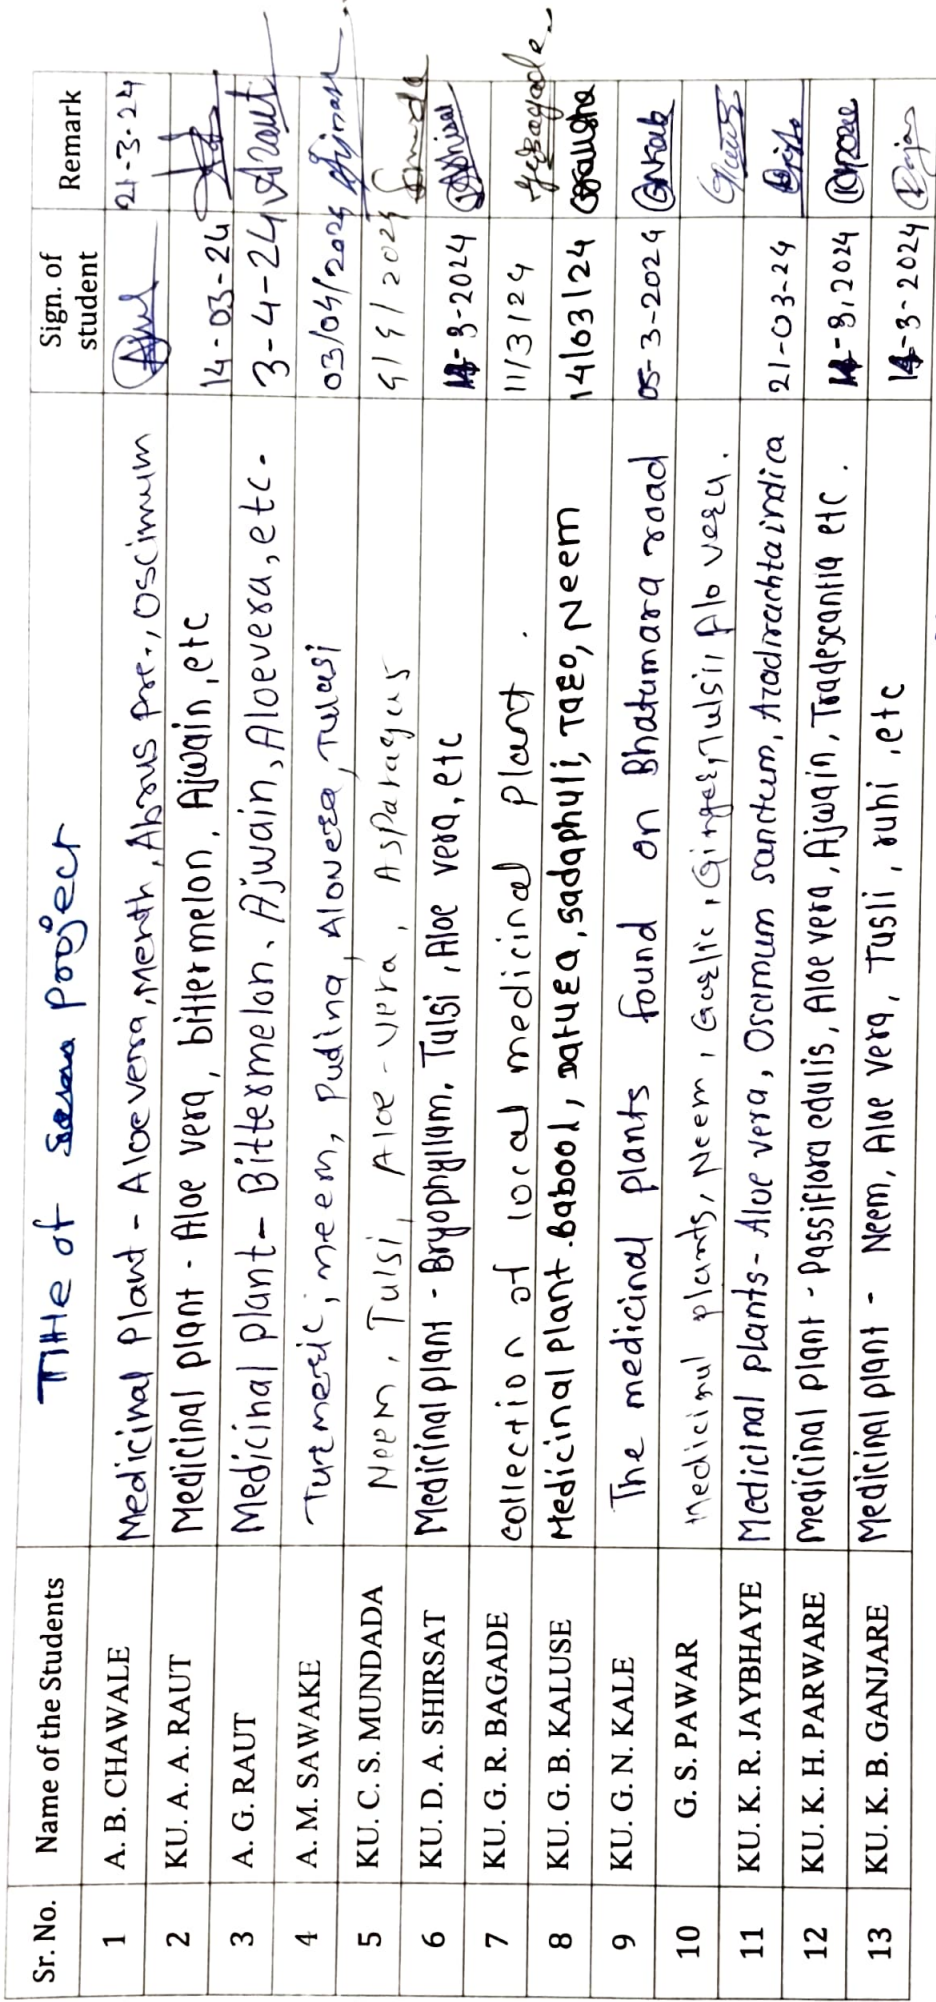 Sr. No. Name of the Students Title of Project Sign. of student Remark
1 A. B. CHAWALE Medicinal Plant - Aloe vera, Menth, Abrus pre., Oscimum 21-3-24
2 KU. A. A. RAUT Medicinal plant - Aloe vera, bitter melon, Ajwain, etc 14-03-24
3 A. G. RAUT Medicinal plant - Bittermelon, Ajwain, Aloevera, etc. 3-4-24 ARaut
4 A. M. SAWAKE Turmeric, neem, Pudina, Alovera, Tulasi 03/04/2024
5 KU. C. S. MUNDADA Neem, Tulsi, Aloe-vera, Asparagus 4/4/2024
6 KU. D. A. SHIRSAT Medicinal plant - Bryophyllum, Tulsi, Aloe vera, etc -3-2024
7 KU. G. R. BAGADE collection of local medicinal plant. 11/3/24
8 KU. G. B. KALUSE Medicinal plant - Babool, Datura, sadaphuli, Neem 14/03/24
9 KU. G. N. KALE The medicinal plants found on Bhatumara road 05-3-2024 GNKale
10 G. S. PAWAR Medicinal plants, Neem, Garlic, Ginger, Tulsi, Alo vera.
11 KU. K. R. JAYBHAYE Medicinal plants - Aloe vera, Oscimum sanctum, Azadirachta indica 21-03-24
12 KU. K. H. PARWARE medicinal plant - Passiflora edulis, Aloe vera, Ajwain, Tradescantia etc. -3-2024
13 KU. K. B. GANJARE Medicinal plant - Neem, Aloe vera, Tusli, ruhi, etc -3-2024